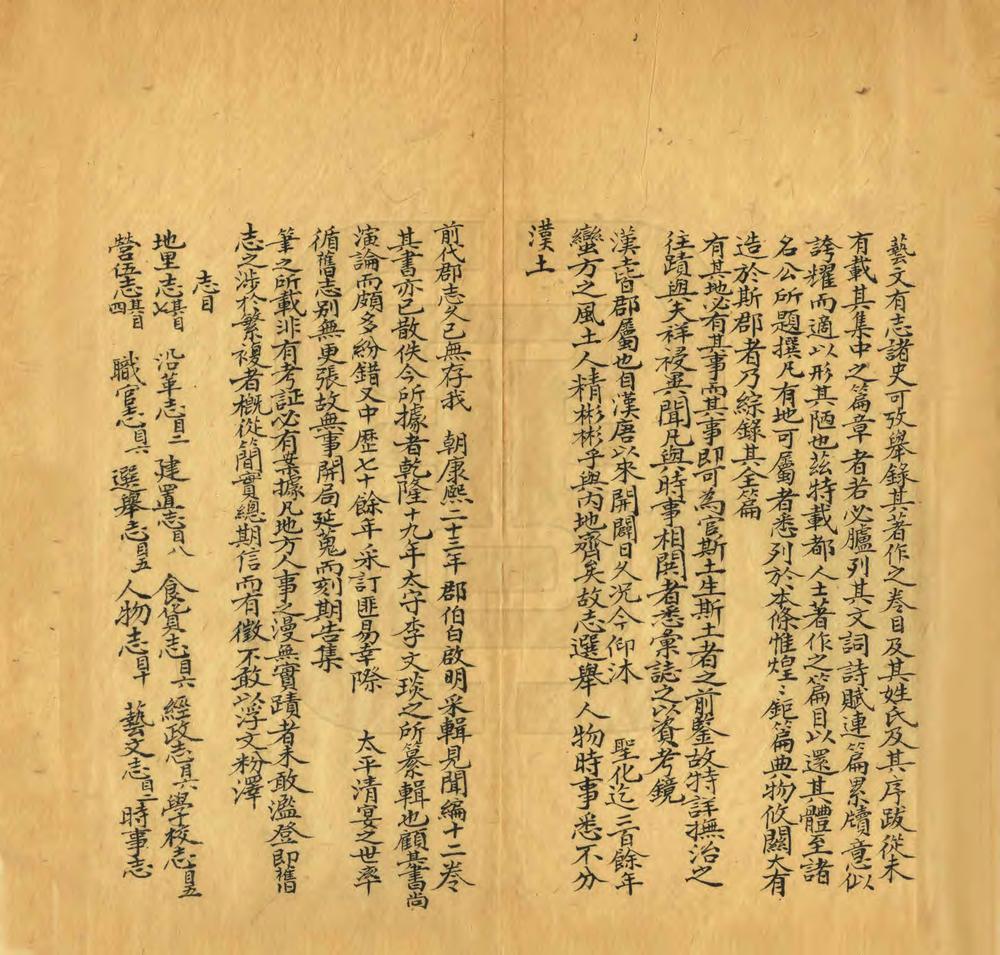 藝文有志諸史可攷舉錄其著作之卷目及其姓氏及其序跋從未
有載其集中之篇章者若必臚列其文詞詩賦連篇累牘意似
誇耀而適以形其陋也茲特載都人士著作之篇目以還其體至諸
名公所題撰凡有地可屬者悉列於本條惟煌〻鉅篇典物攸關大有
造於斯郡者乃綜錄其全篇
有其地必有其事而其事即可為官斯土生斯土者之前鑒故特詳撫治之
往蹟與夫祥祲異聞凡與時事相関者悉彙誌之以資考鏡
漢土皆郡屬也自漢唐以來開闢日久况今仰沐 聖化迄二百餘年
蠻方之風土人精彬彬乎與內地齊矣故志選舉人物時事悉不分
漢土
前代郡志久已無存我 朝康熙二十三年郡伯白啟明采輯見聞編十二卷
其書亦已散佚今所據者乾隆十九年太守李文琰之所纂輯也顧其書尚
演論而頗多紛錯又中歷七十餘年采訂匪易幸際 太平清宴之世率
循舊志別無更張故無事開局延蒐而刻期告集
筆之所載非有考証必有案據凡地方人事之漫無實蹟者未敢濫登即舊
志之涉於繁複者概從簡實總期信而有徵不敢以浮文粉澤
志目
地里志其目七 沿革志目二 建置志目八 食貨志目六 經政志目六 學校志目五
營伍志其目四 職官志目六 選舉志目五 人物志目十 藝文志目二 時事志